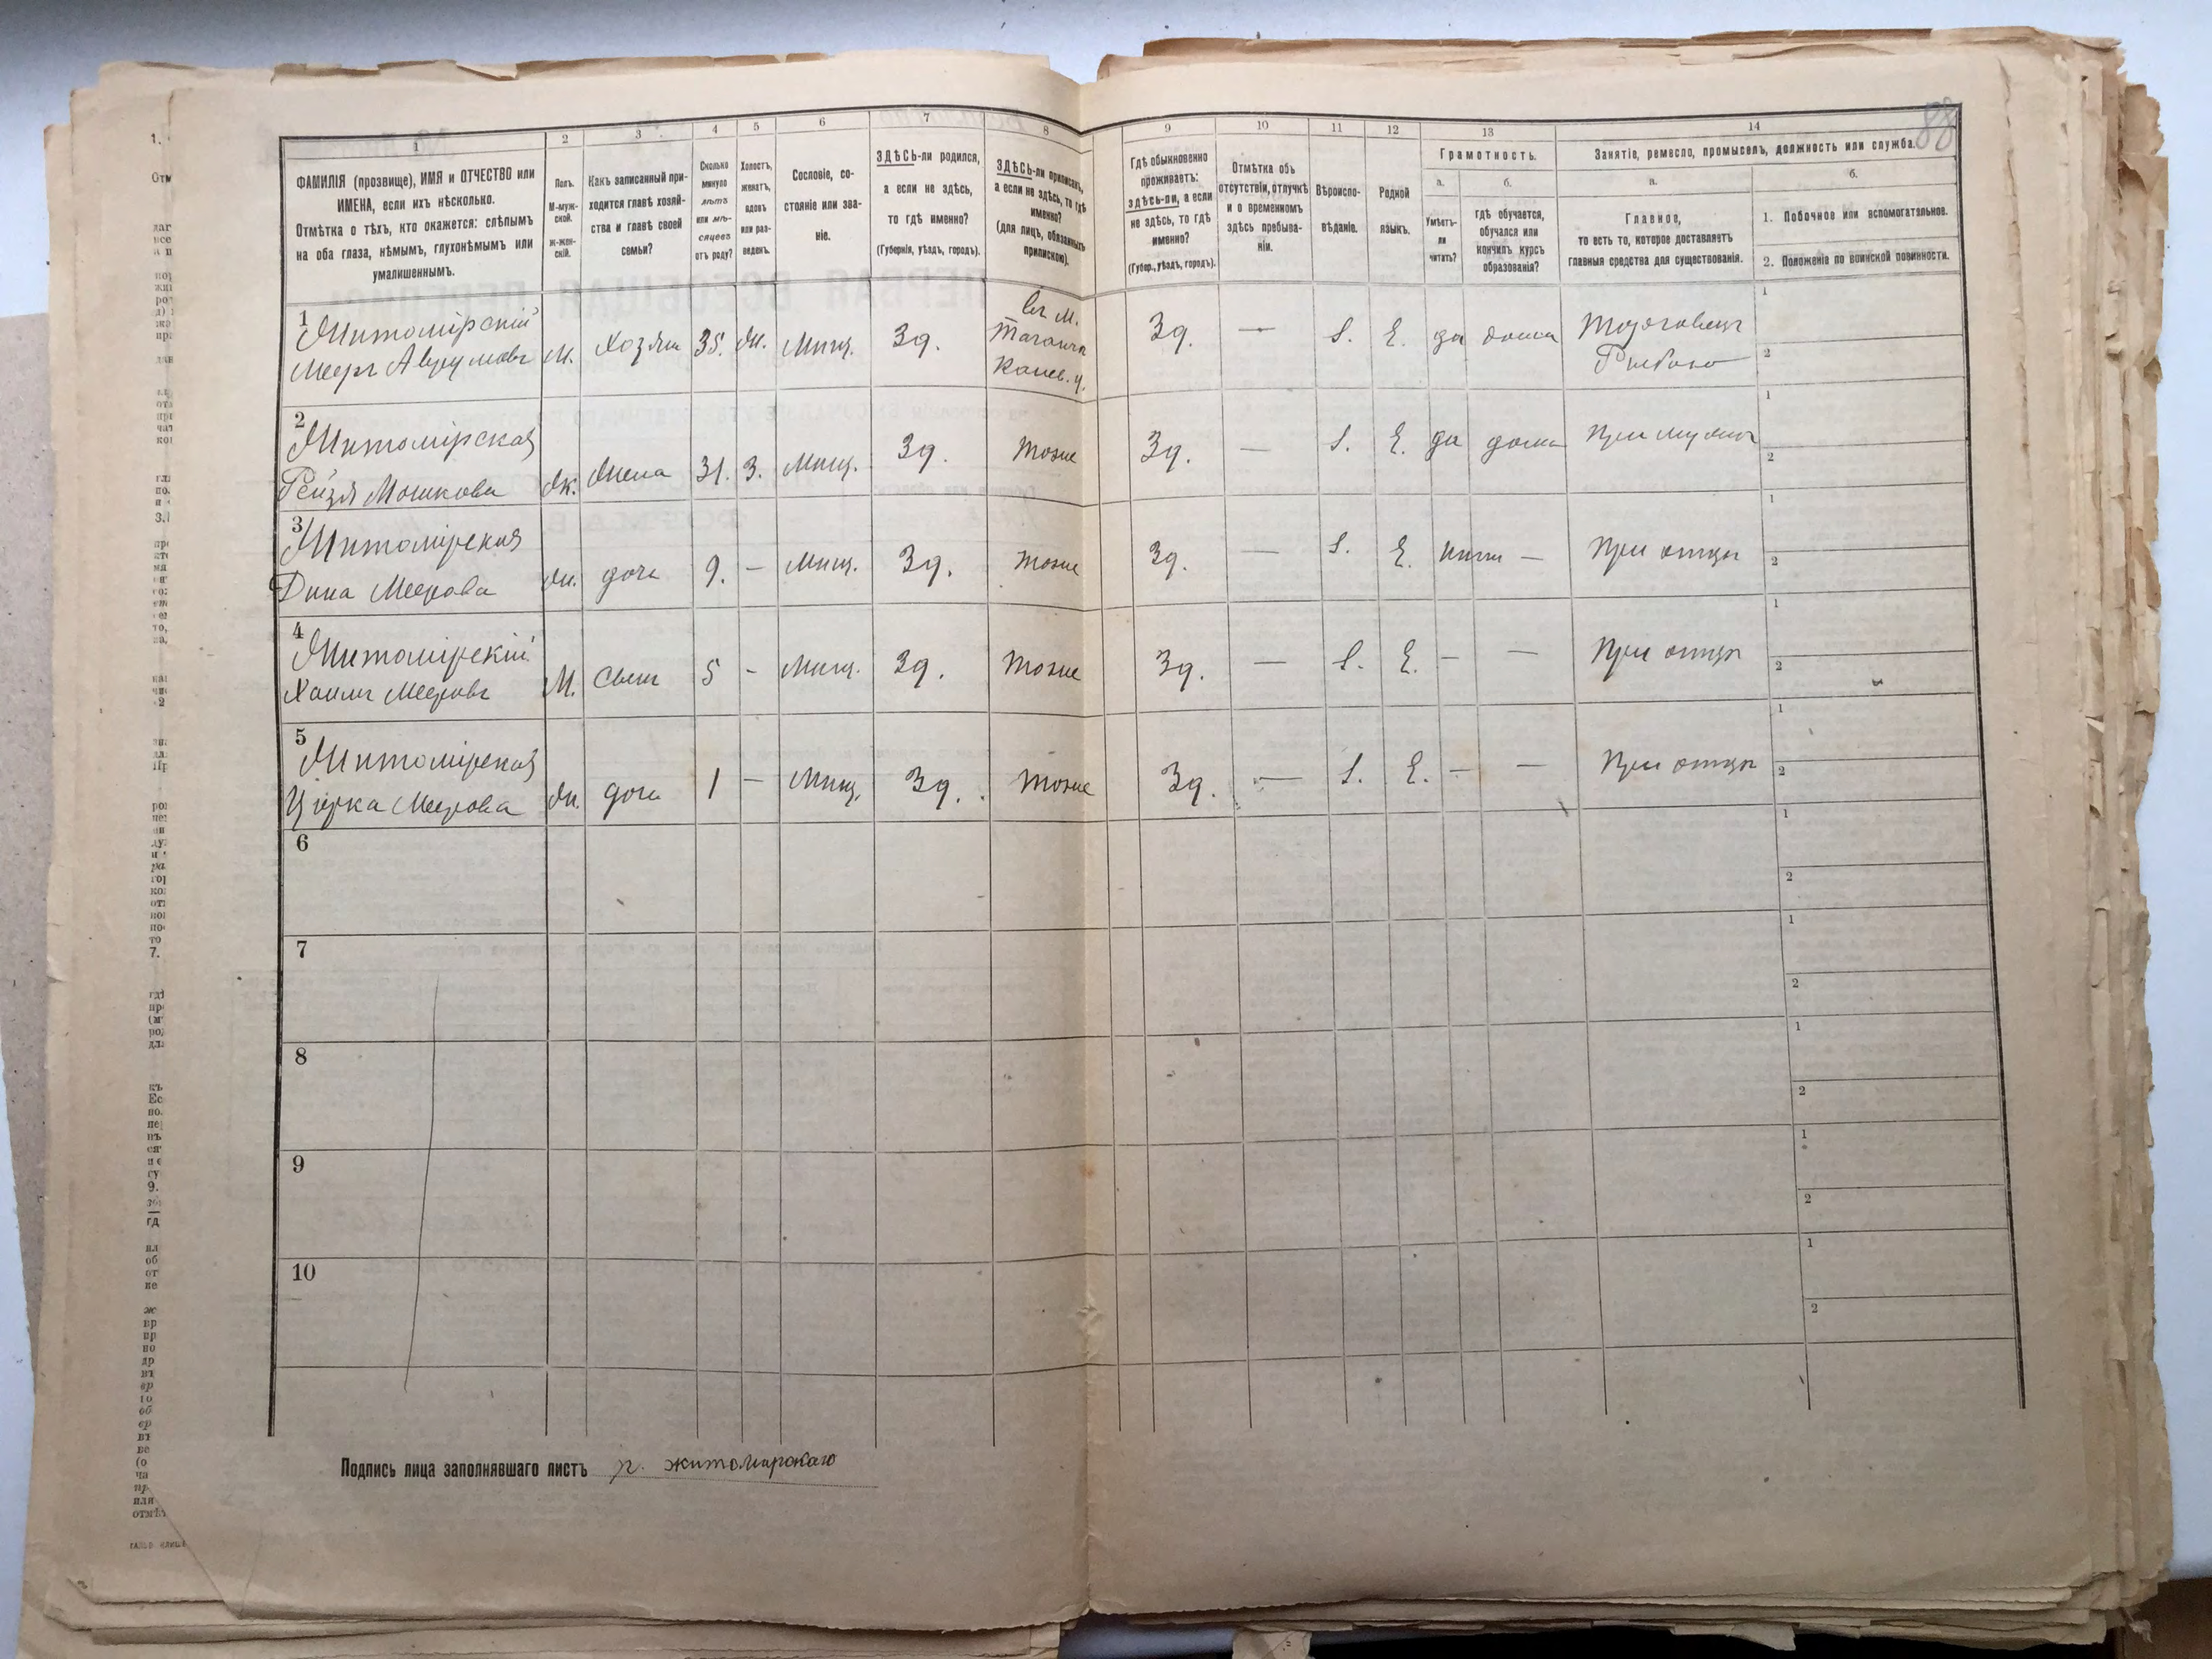 88
1
ФАМИЛІЯ (прозвище), ИМЯ и ОТЧЕСТВО или
ИМЕНА, если ихъ нѣсколько.
Отмѣтка о тѣхъ, кто окажется: слѣпымъ
на оба глаза, нѣмымъ, глухонѣмымъ или
умалишеннымъ.
2
Полъ.
М-муж-
ской.
Ж-жен-
скій.
3
Какъ записанный при-
ходится главѣ хозяй-
ства и главѣ своей
семьи?
4
Сколько
минуло
лѣтъ
или мѣ-
сяцевъ
отъ роду?
5
Холостъ,
женатъ,
вдовъ
или раз-
веденъ.
6
Сословіе, со-
стояніе или зва-
ніе.
7
ЗДѢСЬ-ли родился,
а если не здѣсь,
то гдѣ именно?
(Губернія, уѣздъ, городъ).
8
ЗДѢСЬ-ли приписанъ,
а если не здѣсь, то гдѣ
именно?
(для лицъ, обязанныхъ
припискою).
9
Гдѣ обыкновенно
проживаетъ:
здѣсь-ли, а если
не здѣсь, то гдѣ
именно?
(Губер., уѣздъ, городъ).
10
Отмѣтка объ
отсутствіи, отлучкѣ
и о временномъ
здѣсь пребыва-
ніи.
11
Вѣроиспо-
вѣданіе.
12
Родной
языкъ.
13
Грамотность.
а.
Умѣетъ-
ли
читать?
б.
гдѣ обучается,
обучался или
кончилъ курсъ
образованія?
14
Занятіе, ремесло, промыселъ, должность или служба.
а.
Главное,
то есть то, которое доставляетъ
главныя средства для существованія.
б.
1. Побочное или вспомогательное.
2. Положеніе по воинской повинности.
1
Житомірскій
Мееръ Аврумовъ
М. Хозяин 35. Ж. Мищ. Зд.
въ М.
Таганча
Канев. у.
Зд. — І. Е. да дома
Торговецъ
Рыбою
1
2
2
Житомірская
Рейзя Мошкова
Ж. Жена 31. З. Мищ. Зд. Тоже Зд. — І. Е. да дома При мужѣ
1
2
3
Житомірская
Дина Меерова
Ж. дочь 9. — Мищ. Зд. Тоже Зд. — І. Е. нитъ — При отцѣ
1
2
4
Житомірскій
Хаимъ Мееровъ
М. Сынъ 5 - Мищ. Зд. Тоже Зд. — І. Е. — — При отцѣ
1
2
5
Житомірская
Цирка Меерова
Ж. дочь 1 — Мищ. Зд. Тоже Зд. — І. Е. — — При отцѣ
1
2
6
1
2
7
1
2
8
1
2
9
1
2
10
1
2
Подпись лица заполнявшаго листъ